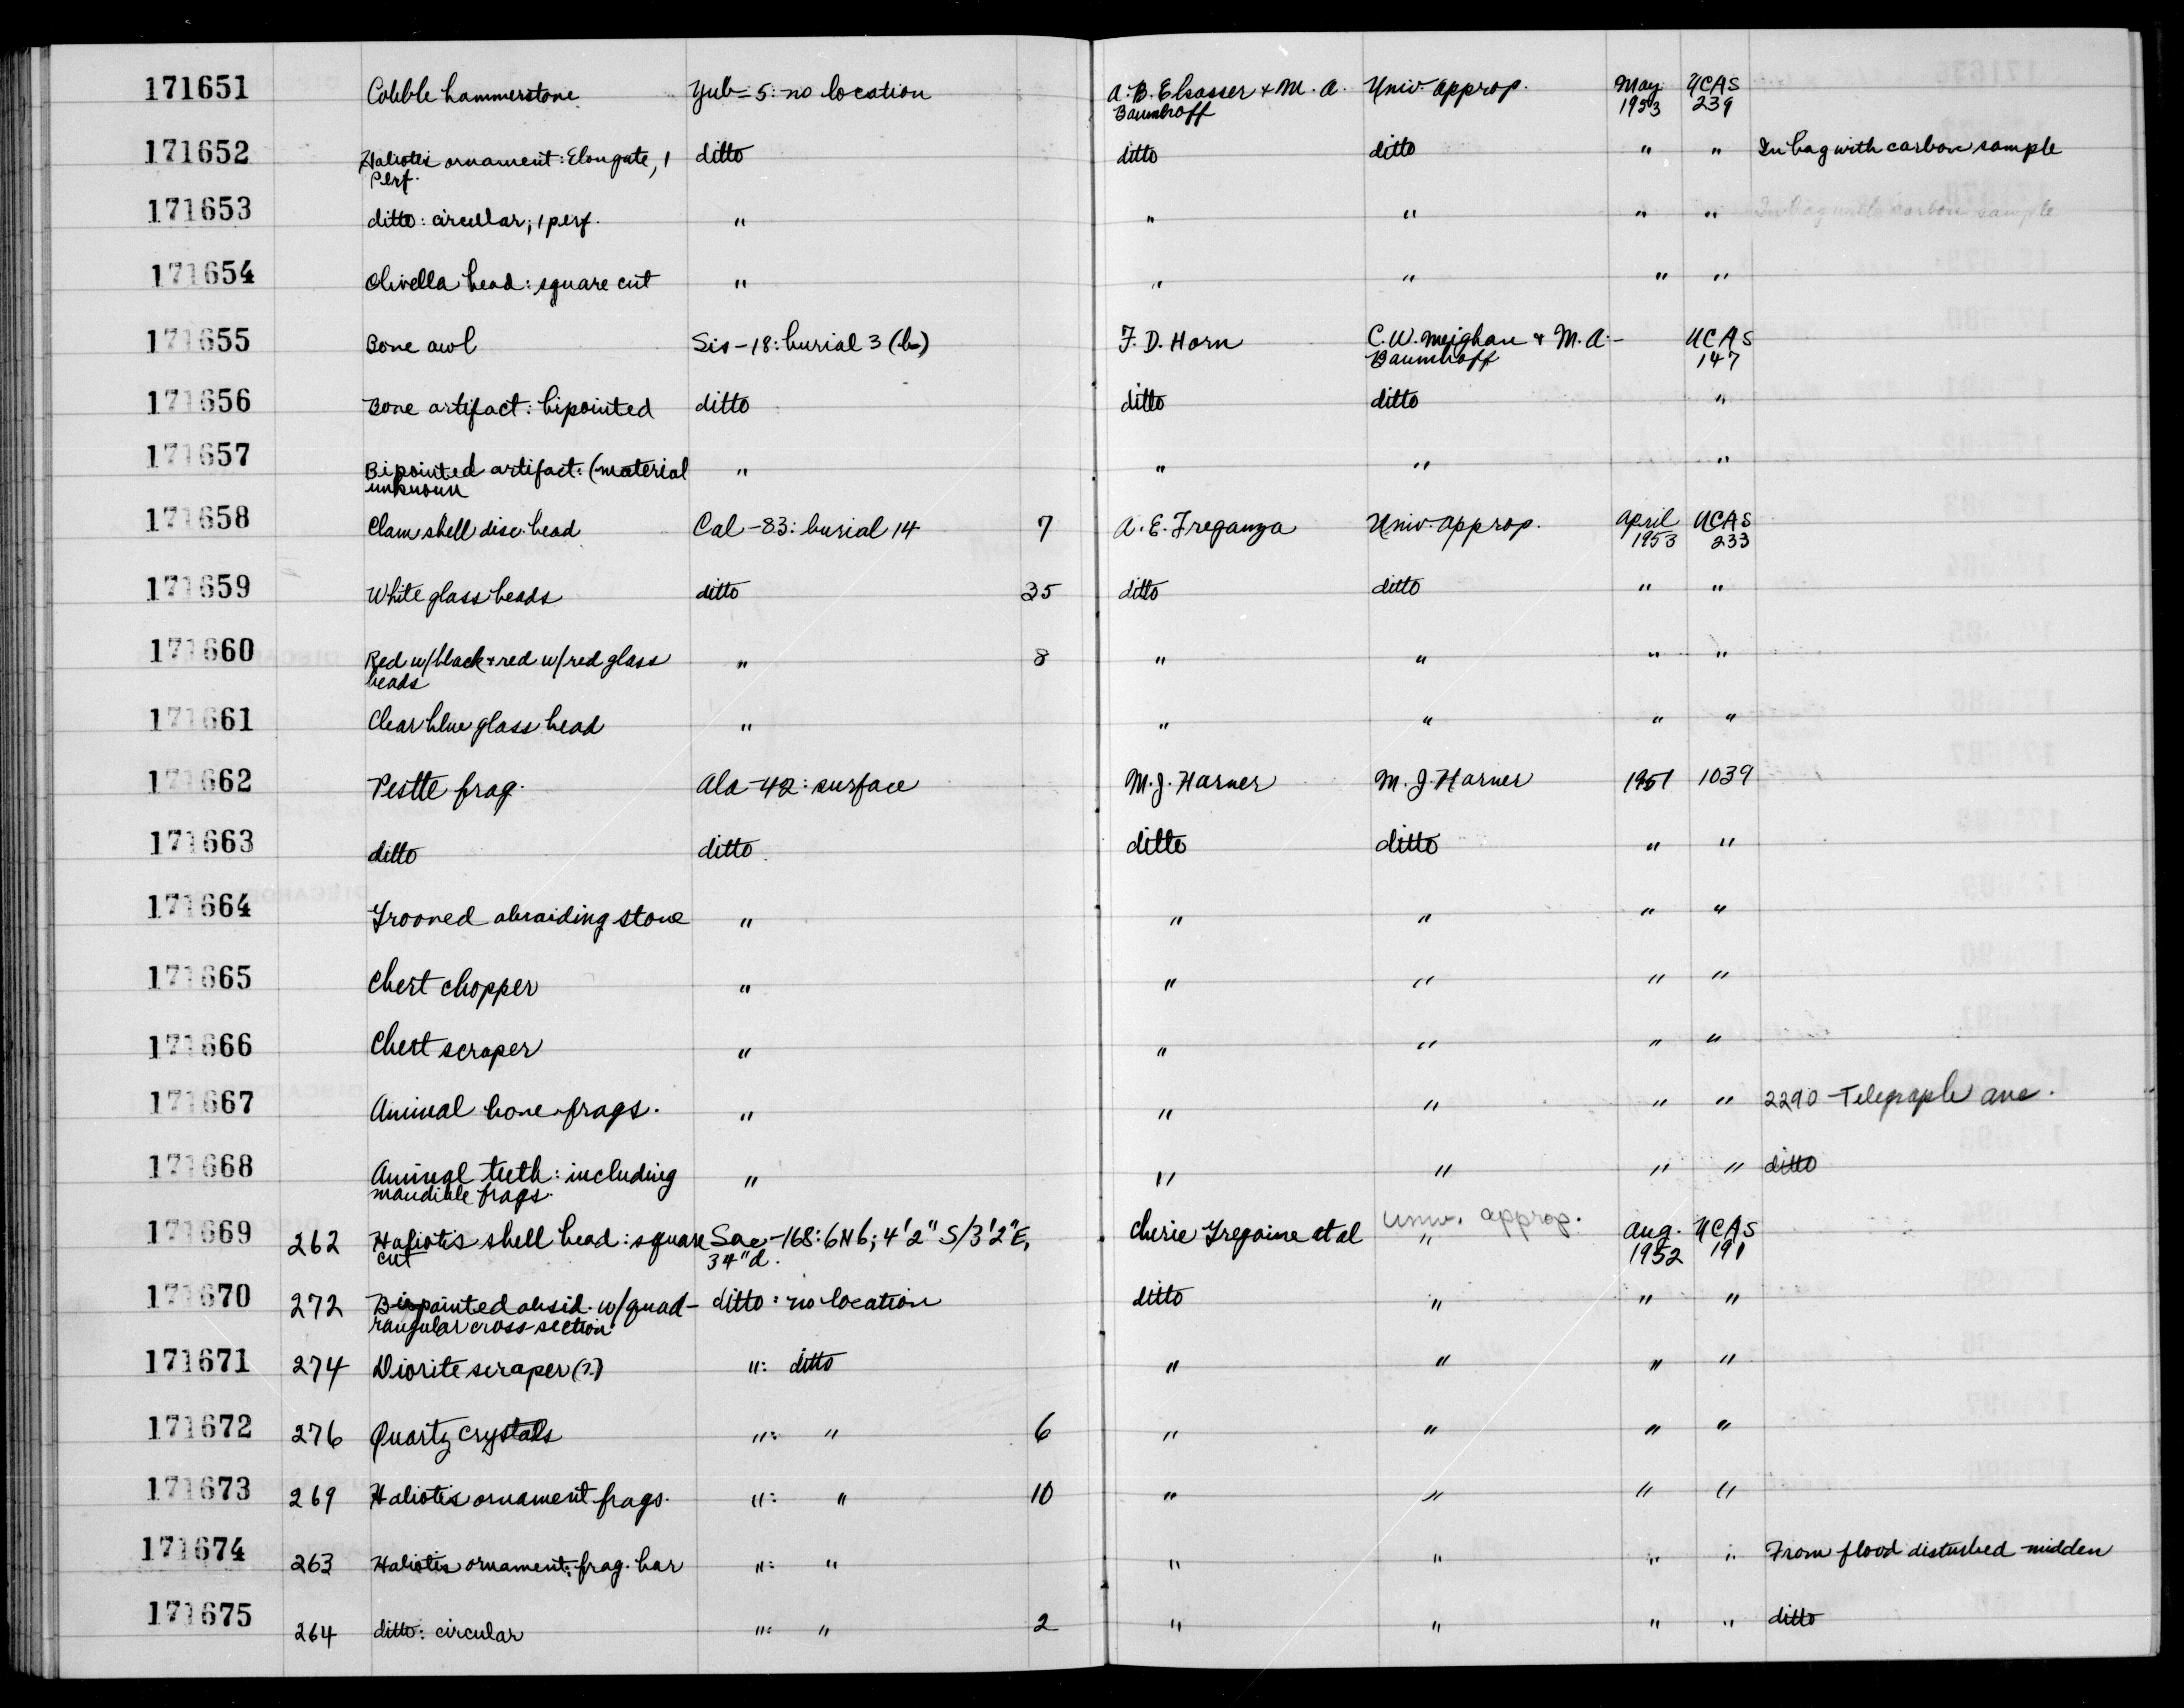 171651 Cobble hammerstone Yub-5: no location A. B. Elsasser & M. A. Univ. approp. May UCAS
Baumhoff 1953 239
171652 Haliotis ornament: Elongate, 1 ditto ditto ditto " " In bag with carbon sample
Perf.
171653 ditto: circular; 1 perf. " " " " " In bag with carbon sample
171654 Olivella bead: square cut " " " " "
171655 Bone awl Sis-18: burial 3 (b) F. D. Horn C. W. Meighan & M. A. - UCAS
Baumhoff 147
171656 Bone artifact: bipointed ditto ditto ditto "
171657 Bipointed artifact: (material " " " "
unknown
171658 Clam shell disc bead Cal-83: burial 14 7 A. E. Treganza Univ. approp. April UCAS
1953 233
171659 White glass beads ditto 35 ditto ditto " "
171660 Red w/black & red w/red glass " 8 " " " "
beads
171661 Clear blue glass bead " " " " "
171662 Pestle frag. Ala-42: surface M. J. Harner M. J. Harner 1951 1039
171663 ditto ditto ditto ditto " "
171664 Grooved abraiding stone " " " " "
171665 Chert chopper " " " " "
171666 Chert scraper " " " " "
171667 Animal bone frags. " " " " " 2290 Telegraph ave.
171668 Animal teeth: including " " " " " ditto
mandible frags.
171669 262 Haliotis shell bead: square Sac-168: 6N6; 4'2" S/3'2"E, Cherie Gregoire et al " Univ. approp. Aug. UCAS
cut 34"d. 1952 191
171670 272 Bi-pointed obsid. w/quad- ditto: no location ditto " " "
rangular cross-section
171671 274 Diorite scraper (?) ": ditto " " " "
171672 276 Quartz crystals ": " 6 " " " "
171673 269 Haliotis ornament frags. ": " 10 " " " "
171674 263 Haliotis ornament: frag. bar ": " " " " " From flood disturbed midden
171675 264 ditto: circular ": " 2 " " " " ditto